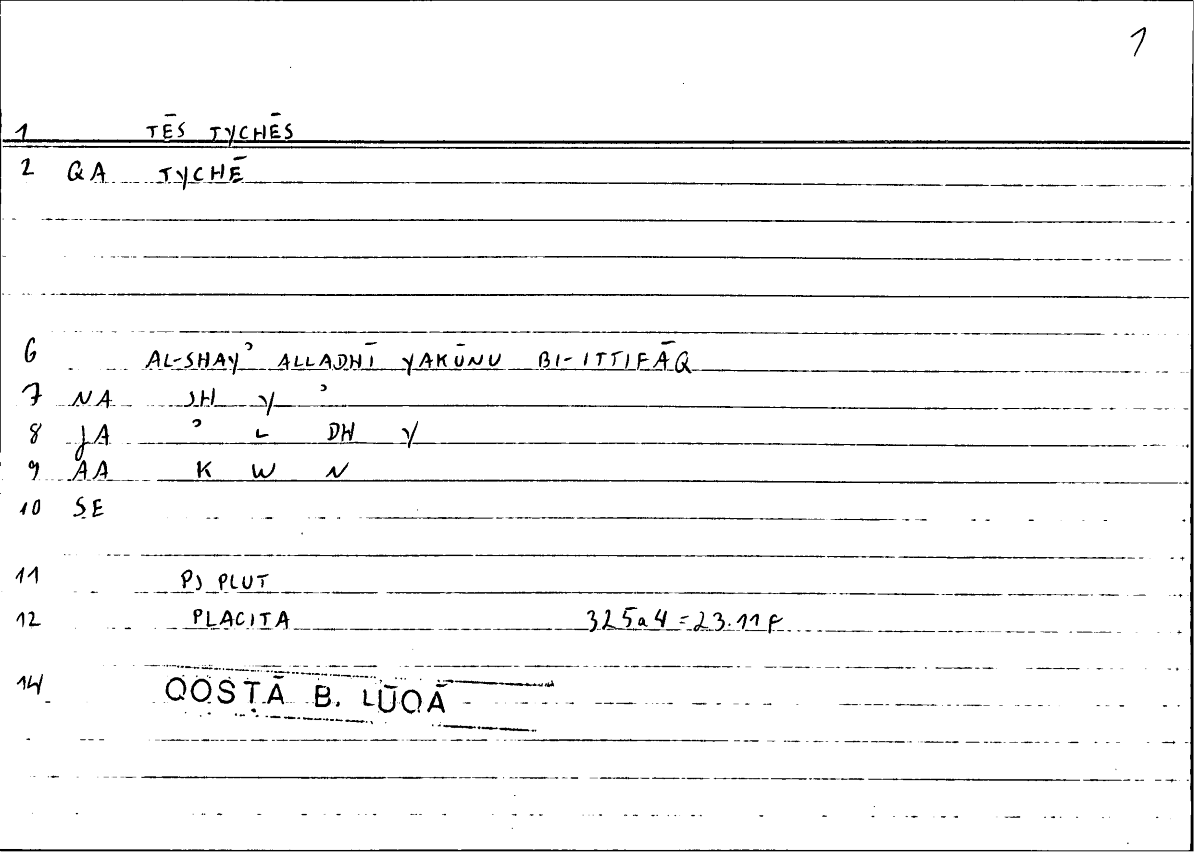 1
1 TĒS TYCHĒS
2 QA TYCHĒ
6 AL-SHAYʾ ALLADHĪ YAKŪNU BI-ITTIFĀQ
7 NA SH Y ʾ
8 JA ʾ L DH Y
9 AA K W N
10 SE
11 PS PLUT
12 PLACITA 325a4=23.11f
14 QOSṬĀ B. LŪQĀ